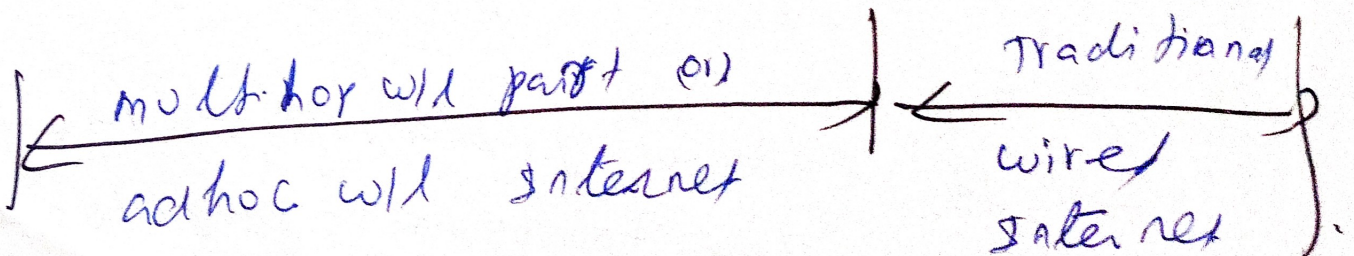 multi-hop w/l part (or)
adhoc w/l Internet
Traditional
wired
Internet